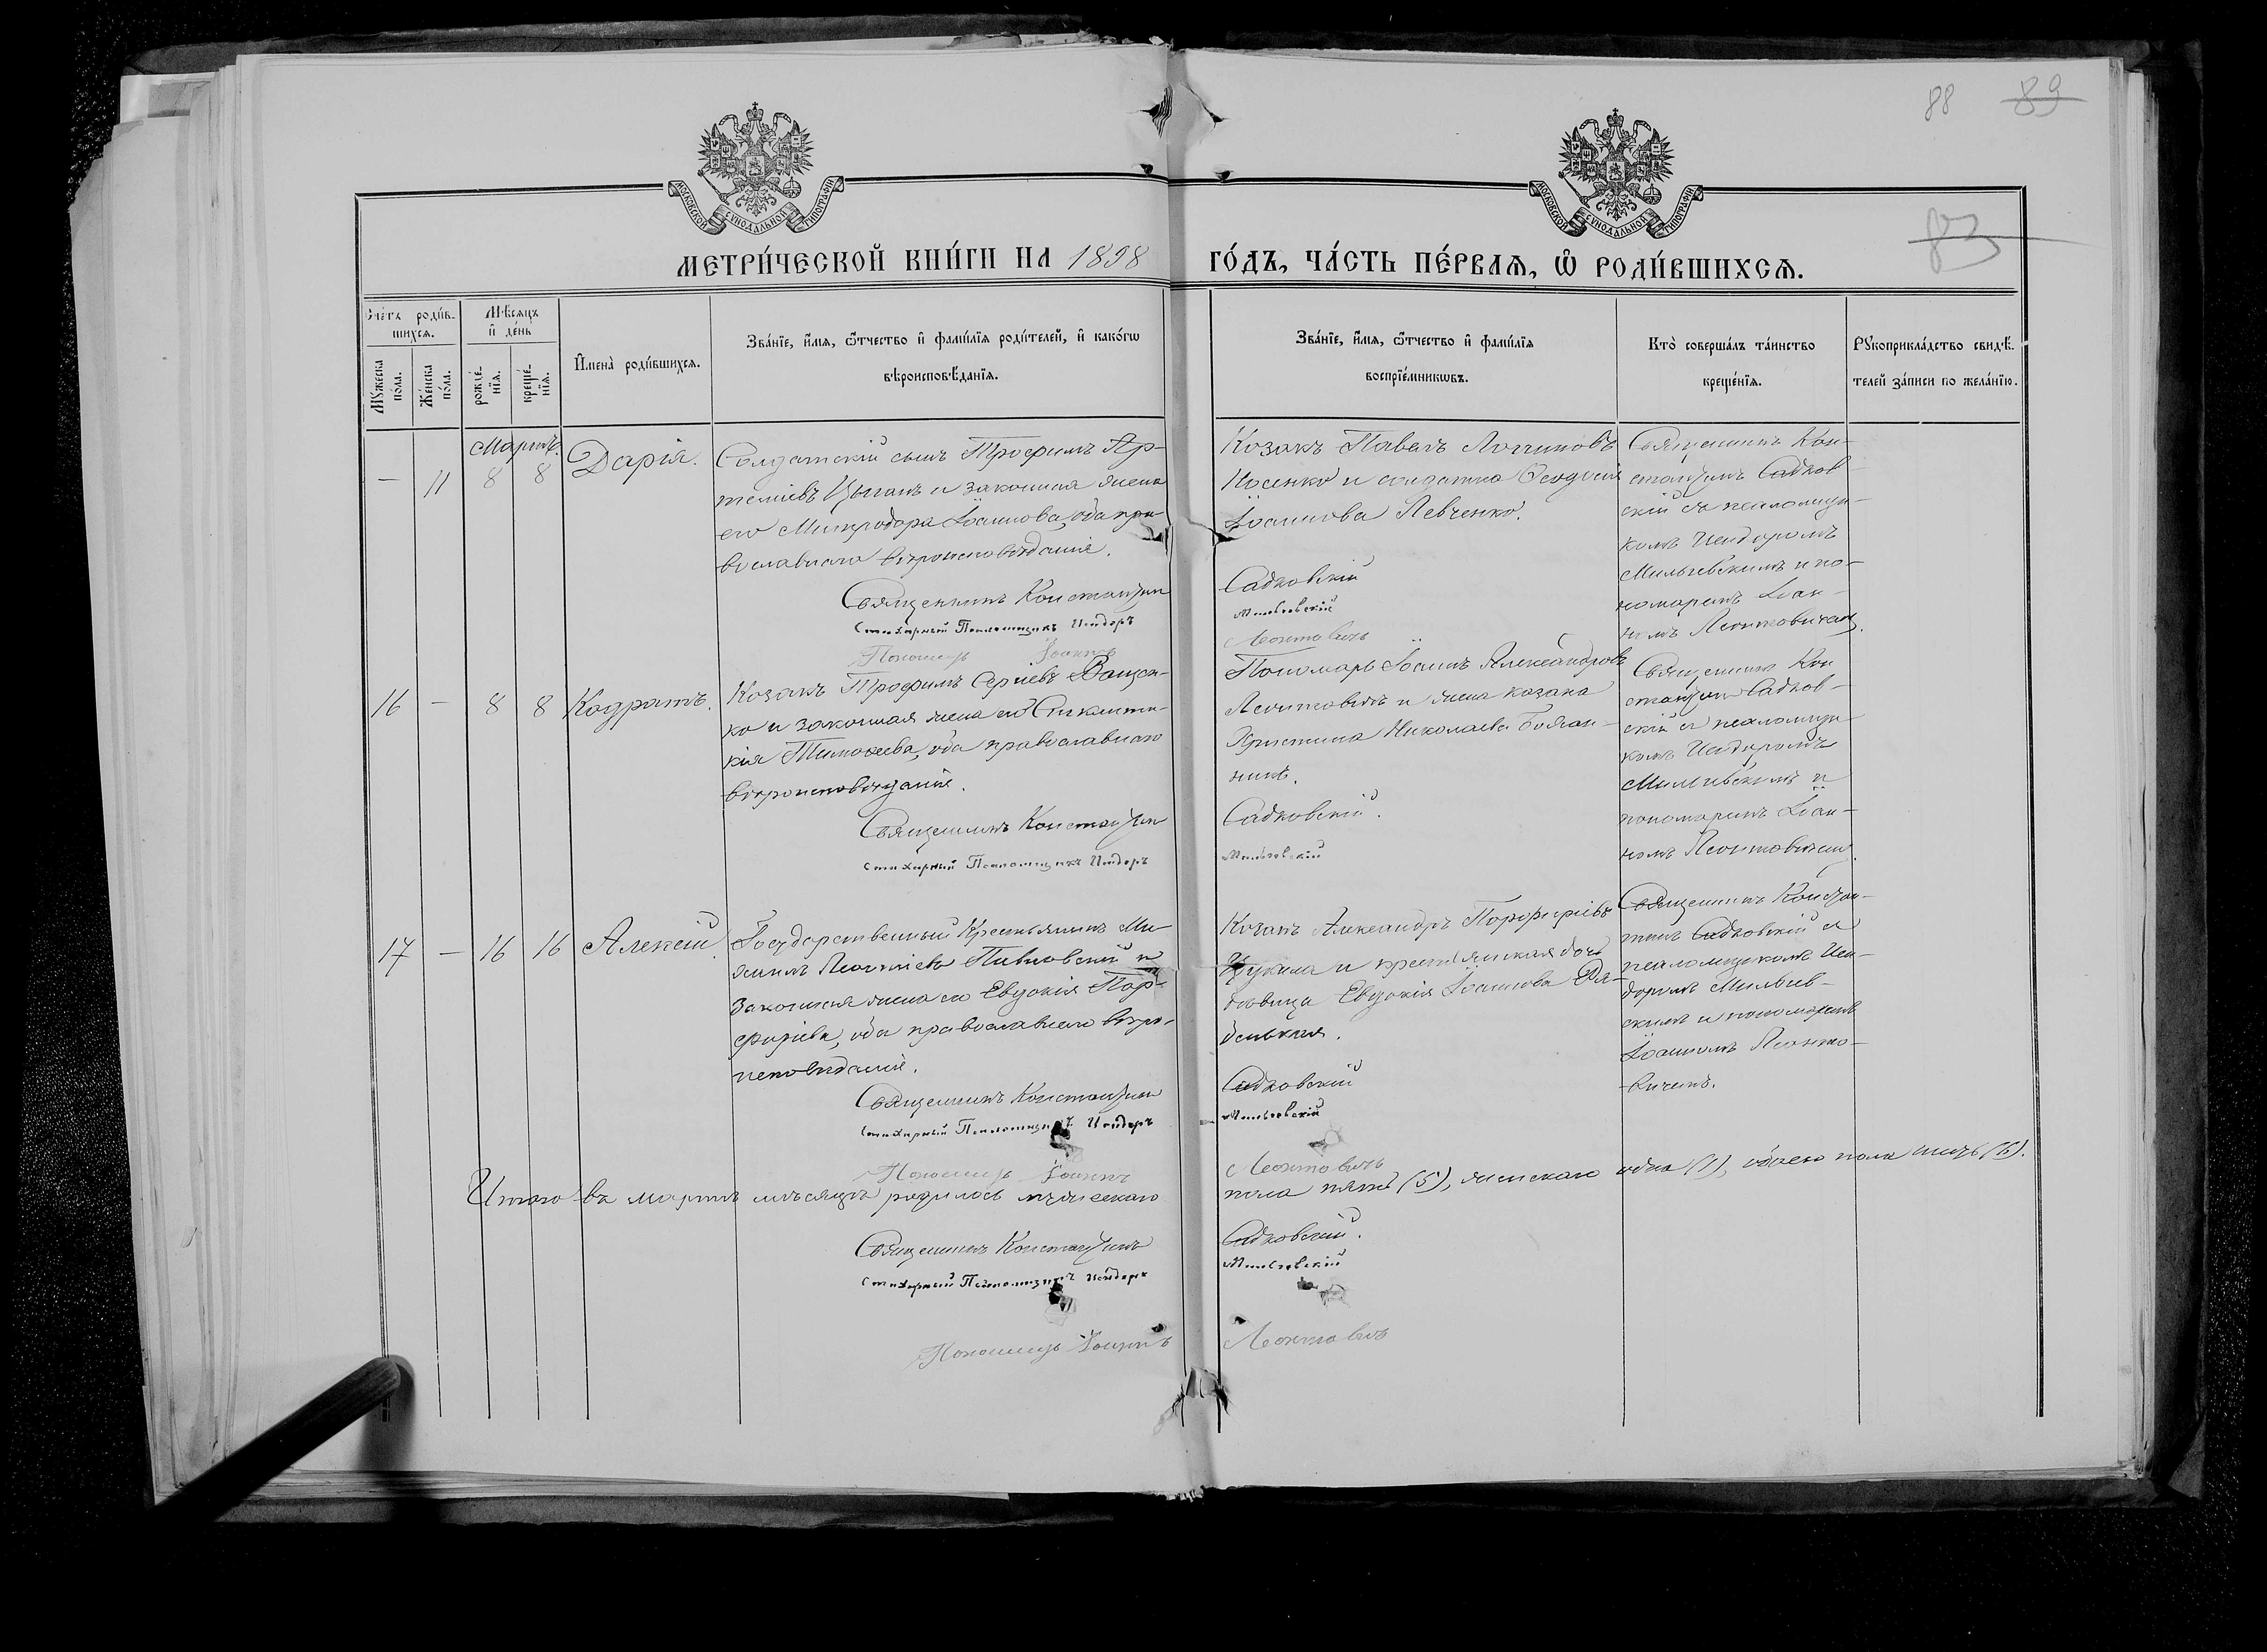 88 89
83
МОСКОВСКОЙ СУНОДАЛЬНОЙ ТИПОГРАФІИ
МОСКОВСКОЙ СУНОДАЛЬНОЙ ТИПОГРАФІИ
МЕТРИ́ЧЕСКОЙ КНИ́ГИ НА 1898 ГО́ДЪ, ЧА́СТЬ ПЕ́РВАѦ, Ѡ҆ РОДИ́ВШИХСѦ.
Сче́тъ роди́в-
шихсѧ.
Мѣ́сѧцъ
и҆ де́нь
Мꙋ́жеска
по́ла.
Же́нска
по́ла.
рожде́-
нїѧ.
креще́-
нїѧ.
И҆мена̀ роди́вшихсѧ.
Зва́нїе, и҆́мѧ, ѻ҆́тчество и҆ фами́лїѧ роди́телей, и҆ како́гѡ
вѣроисповѣ́данїѧ.
Зва́нїе, и҆́мѧ, ѻ҆́тчество и҆ фами́лїѧ
воспрїе́мникѡвъ.
Кто̀ соверша́лъ та́инство
креще́нїѧ.
Рꙋкоприкла́дство свидѣ́-
телей за́писи по жела́нїю.
Мартъ.
— 11 8 8 Дарія.
Солдатскій сынъ Трофимъ Ар-
теміевъ Цыганъ и законная жена
его Митродора Іоаннова, оба пра-
вославнаго вѣроисповѣданія.
Священникъ Константин
Стихарный Псаломщикъ Исидоръ
Пономарь Іоаннъ
Козакъ Павелъ Логиновъ
Носенко и солдатка Ѳеодосія
Іоаннова Левченко.
Садковскій
Мильгевскій
Леонтовичъ
Священникъ Кон-
стантинъ Садков-
скій съ псаломщи-
комъ Исидоромъ
Мильгевскимъ и по-
номаремъ Іоан-
номъ Леонтовичем.
16 — 8 8 Кодратъ.
Козакъ Трофимъ Сергіевъ Ващен-
ко и законная жена его Сигклити-
кія Тимоѳеева, оба православнаго
вѣроисповѣданія.
Священникъ Константин
Стихарный Псаломщикъ Исидоръ
Пономарь Іоаннъ Александровъ
Леонтовичъ и жена козака
Христина Николаева Боян-
никъ.
Садковскій.
Мильгевскій
Священникъ Кон
стантин Садков-
скій съ псаломщи-
комъ Исидоромъ
Мильгевскимъ и
пономаремъ Іоан-
номъ Леонтовичем.
17 — 16 16 Алексій.
Государственный Крестьянинъ Ми-
хаилъ Леонтіевъ Павловскій и
законная жена его Евдокія Пор-
фиріева, оба православнаго вѣро-
исповѣданія.
Священникъ Константин
Стихарный Псаломщикъ Исидоръ
Пономарь Іоаннъ
Козакъ Александръ Порфиріевъ
Цукила и крестьянская дочь
дѣвица Евдокія Іоаннова Ря-
денькая.
Садковскій
Мильгевскій
Леонтовичъ
Священникъ Констан-
тинъ Садковскій съ
псаломщикомъ Иси-
доромъ Мильгев-
скимъ и пономаремъ
Іоанномъ Леонто-
вичемъ.
Итого въ мартѣ мѣсяцѣ родилось мужескаго пола пять (5), женскаго одна (1), обоего пола шесть (6).
Священникъ Константинъ Садковскій.
Стихарный Псаломщикъ Исидоръ Мильгевскій
Пономарь Іоаннъ Леонтовичъ